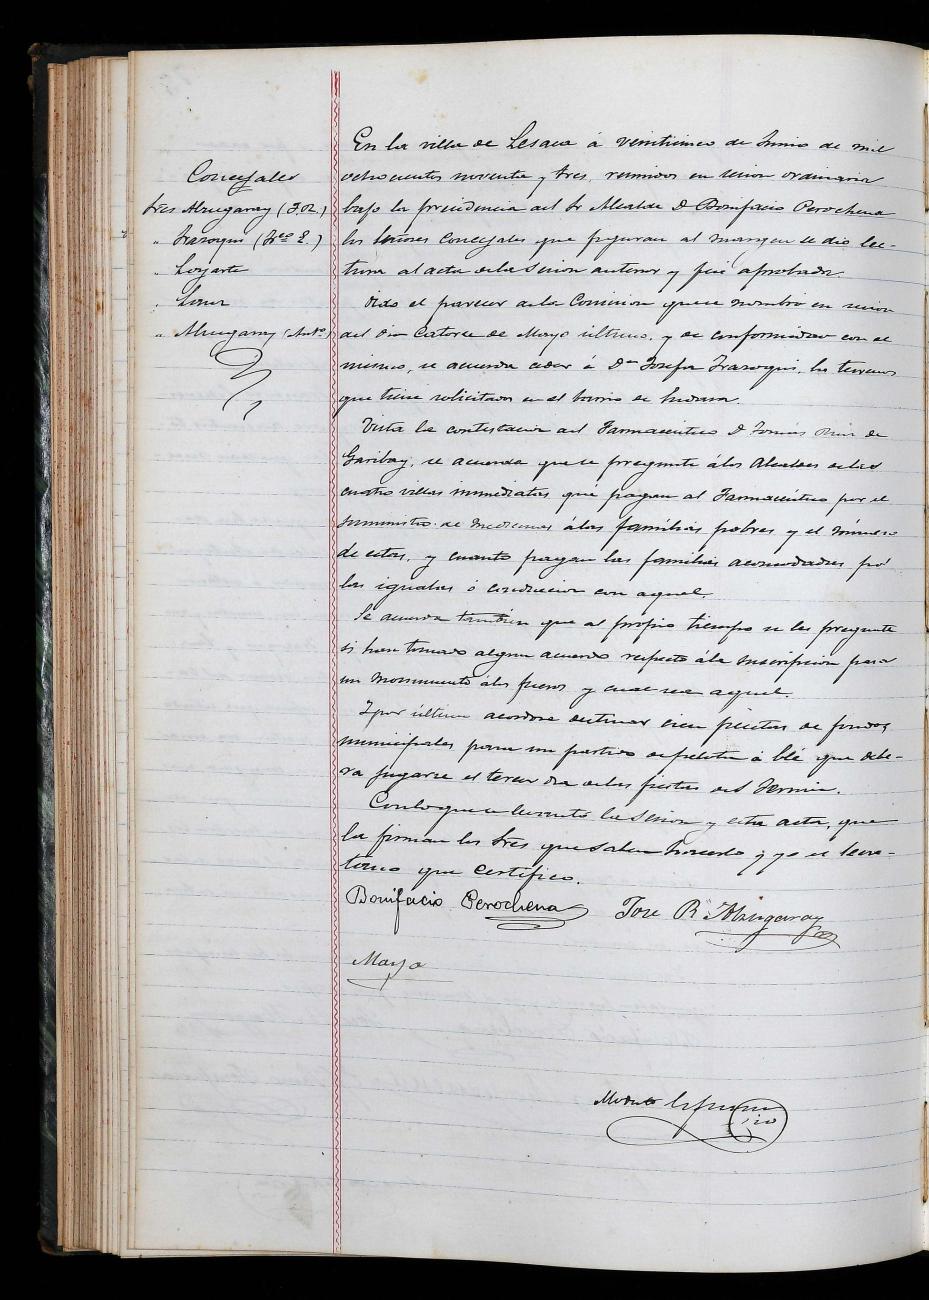 Concejales
Sres Almugaray (J. R.)
" Irazoqui (Fco E.)
" Loyarte
"
" Almugaray (Anto)
En la villa de Lesaca á veinticinco de Junio de mil
ochocientos noventa y tres, reunidos en sesion ordinaria
bajo la presidencia del Sr Alcalde D Bonifacio Perochena
los Señores Concejales que figuran al margen se dió lec-
tura al acta de la sesion anterior y fué aprobada.
Oido el parecer de la Comision que se nombró en sesion
del dia Catorce de Mayo último, y de conformidad con el
mismo, se acuerda ceder á Da Josefa Irazoqui, los terrenos
que tiene solicitados en el barrio de
Vista la contestacion del Farmaceutico D Tomás Ruiz de
Garibay, se acuerda que se pregunte á los Alcaldes de las
cuatro villas inmediatas que pagan al Farmacéutico por el
suministro de medicinas á las familias pobres y el número
de estas, y cuanto pagan las familias acomodadas por
las igualas ó conduccion con aquel.
Se acuerda tambien que al propio tiempo se les pregunte
si han tomado algun acuerdo respecto á la suscripcion para
un monumento á los fueros y cual sea aquel.
Y por último acordose destinar cien pesetas de fondos
municipales para un partido de pelota á blé que debe-
rá jugarse el tercer dia de las fiestas de S Fermin.
Con lo que se levantó la sesion y esta acta, que
la firman los Sres que saben hacerlo y yo el Secre-
tario que certifico.
Bonifacio Perochena Jose R. Almugaray
Maya
Modesto